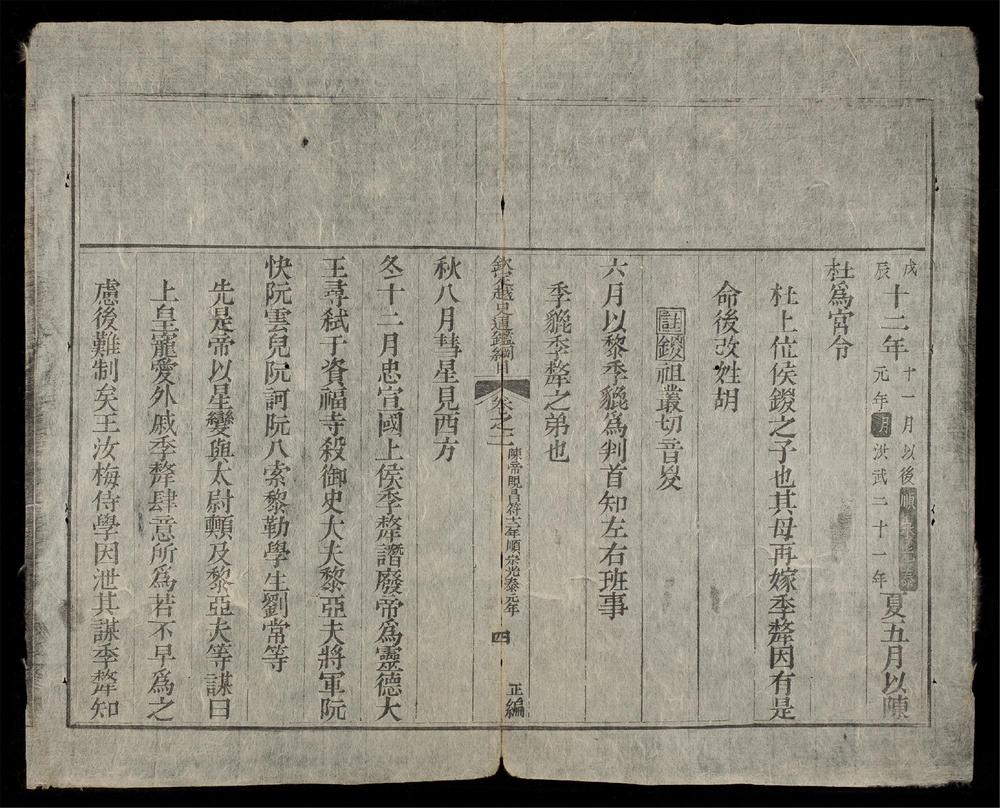 戊辰十二年十一月以後順宗光泰元年明洪武二十一年夏五月以陳
杜爲宮令
杜上位侯鍐之子也其母再嫁季犛因有是
命後改姓胡
註鍐祖叢切音嵏
六月以黎季貔爲判首知左右班事
季貔季犛之弟也
欽定越史通鑑綱目 卷之十一 陳帝晛昌符十二年順宗光泰元年 四 正編
秋八月彗星見西方
冬十二月忠宣國上侯季犛譖廢帝爲靈德大
王尋弒于資福寺殺御史大夫黎亞夫將軍阮
快阮雲兒阮訶阮八索黎勒學生劉常等
先是帝以星變與太尉頵及黎亞夫等謀曰
上皇寵愛外戚季犛肆意所爲若不早爲之
慮後難制矣王汝梅侍學因泄其謀季犛知